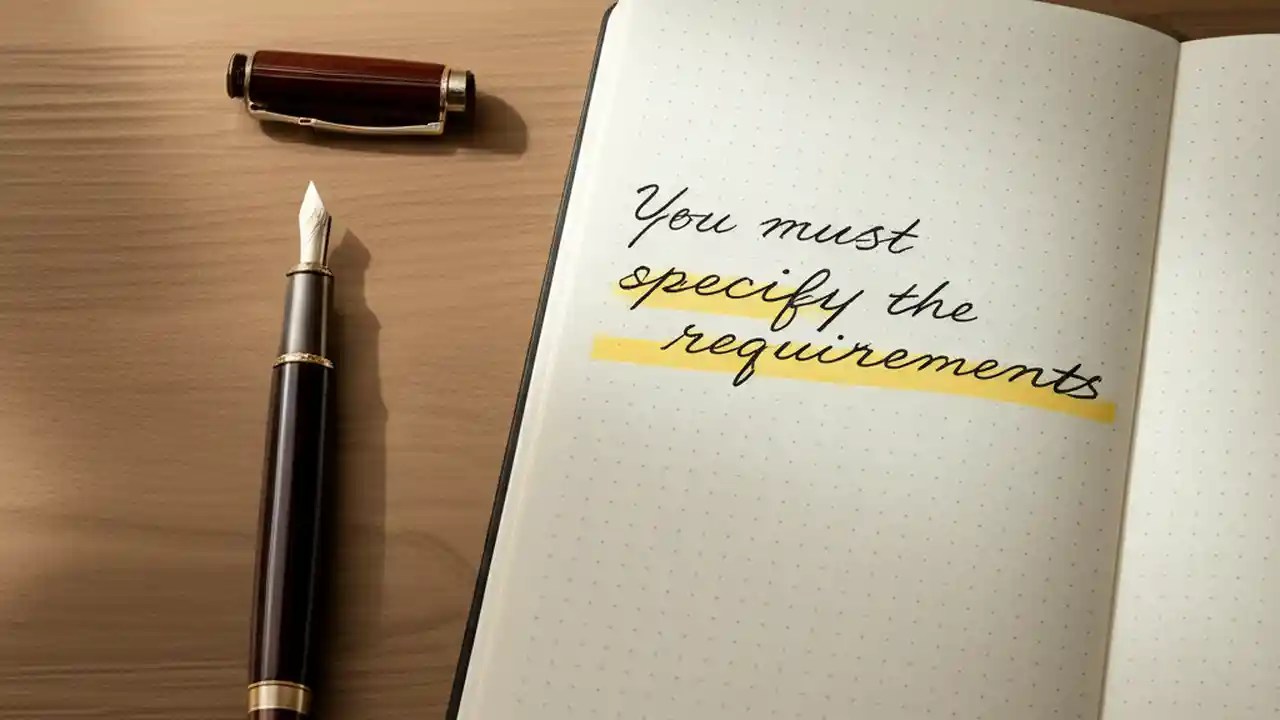 You must
specify the
requirements